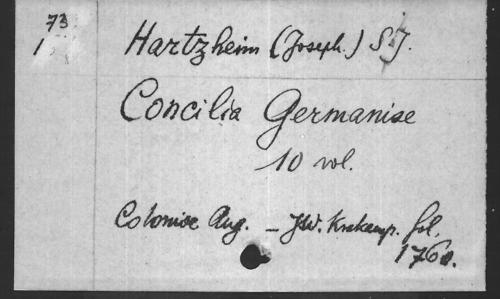 73
1
Hartzheim (Joseph.) S.J.
Concilia Germaniae
10 vol.
Coloniae Aug. — JW. Krakamp. fol.
1760.